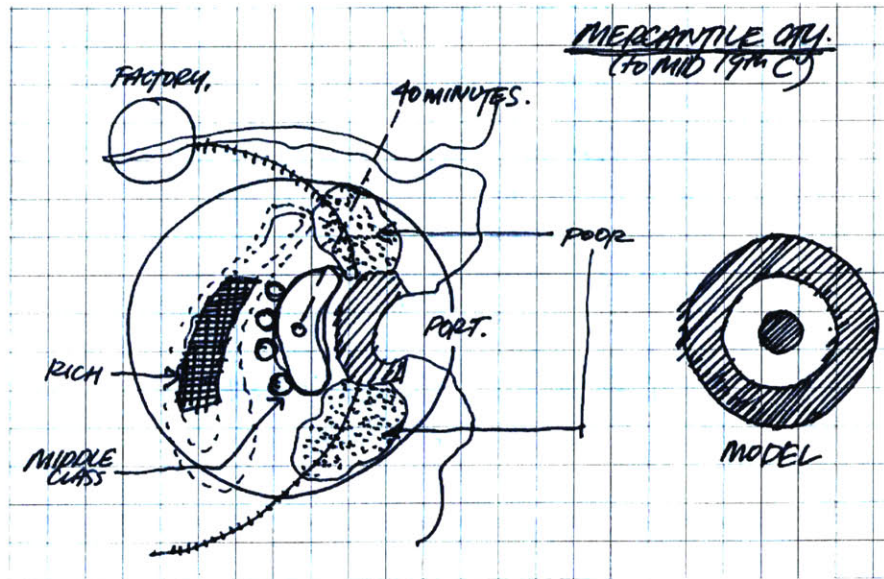 MERCANTILE CITY.
(TO MID 19TH CY)
FACTORY.
40 MINUTES.
POOR
PORT.
RICH
MIDDLE
CLASS
MODEL